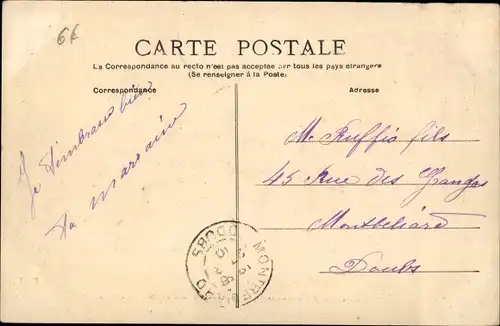 6f
CARTE POSTALE
La Correspondance au recto n'est pas acceptée par tous les pays étrangers
(Se renseigner à la Poste)
Correspondance
Adresse
Je t'embrasse bien
Ta marraine
M. Ruffio fils
45 Rue des Granges
Montbéliard
Doubs
DOUBS